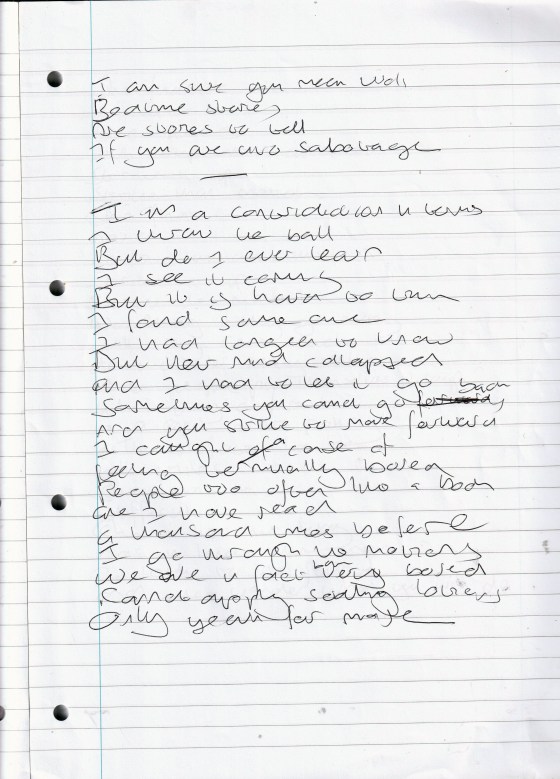 I am sure you mean well
Become stories
Are stories to tell
If you are into sabotage
I'm a contradiction in terms
I throw the ball
But do I ever learn
I see it coming
But it is hard to turn
I found some one
I had longed to know
But her mind collapsed
and I had to let it go
Sometimes you cannot go back
When you strive to move forward
I caught a case of
feeling terminally bored
People too often like a book
one I have read
a thousand times before
I go through the motions
We are in fact very bored
Cannot apply soothing lotions
Only yearn for more